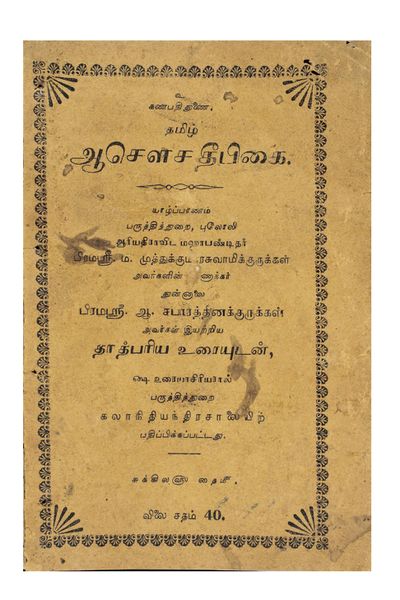 கணபதிதுணை.
தமிழ்
ஆசௌச தீபிகை.
யாழ்ப்பாணம்
பருத்தித்துறை, புலோலி
ஆரியதிராவிட மஹாபண்டிதர்
பிரமஸ்ரீ. ம. முத்துக்குமாரசுவாமிக்குருக்கள்
அவர்களின் மாணாக்கர்
துன்னாலை
பிரமஸ்ரீ. ஆ. சபாரத்தினக்குருக்கள்
அவர்கள் இயற்றிய
தாத்பரிய உரையுடன்,
ஷை உரையாசிரியரால்
பருத்தித்துறை
கலாநிதியந்திரசாலையிற்
பதிப்பிக்கப்பட்டது.
சுக்கில௵ தைமீ.
விலை சதம் 40.